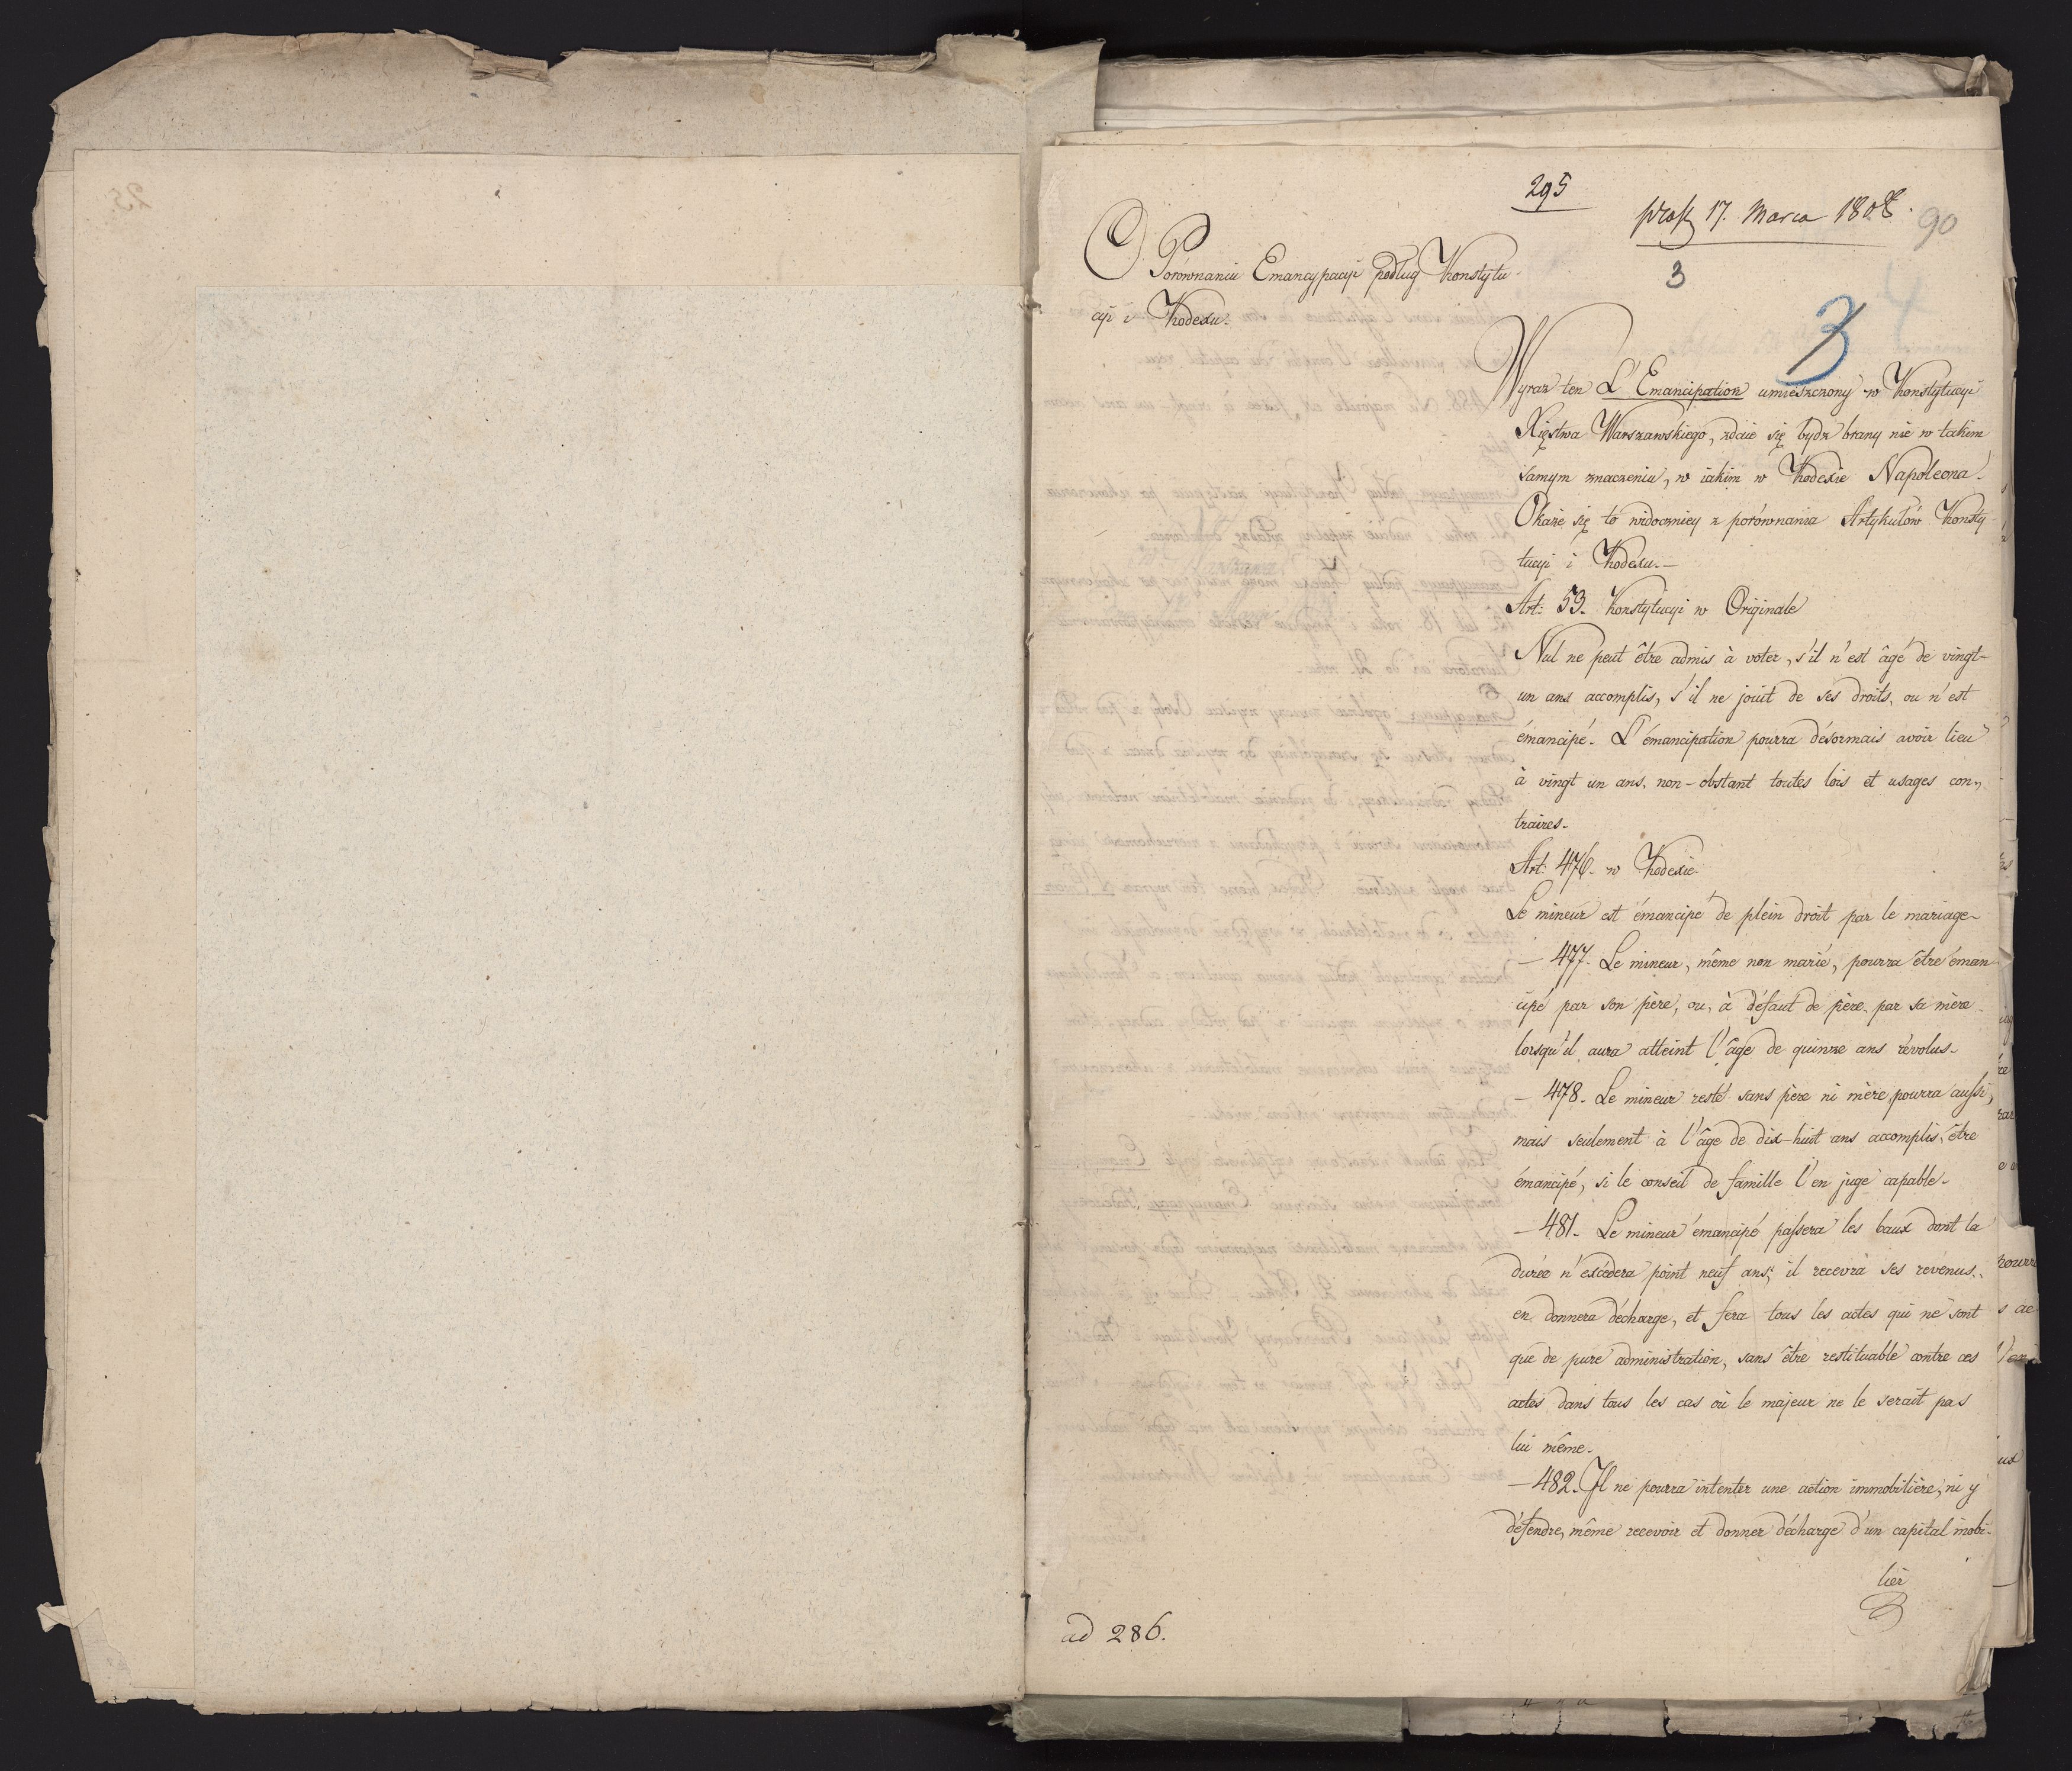 295
17. Marca 1808.
90
3
O Porównaniu Emancypacyi podług Konstytu-
cyi i Kodexu.
3
4
Wyraz ten L'Emancipation umieszczony w Konstytucyi
Xięstwa Warszawskiego, zdaie się bydź brany nie w takim
samym znaczeniu, w iakim w Kodexie Napoleona.
Okaże się to widoczniey z porównania Artykułów Konsty-
tucyi i Kodexu.—
Art: 53. Konstytucyi w Originale
Nul ne peut être admis à voter, s'il n'est âgé de vingt-
un ans accomplis, s'il ne jouit de ses droits, ou n'est
émancipé. L'émancipation pourra désormais avoir lieu
à vingt un ans, non-obstant toutes lois et usages con-
traires.
Art: 476. w Kodexie.
Le mineur est émancipé de plein droit par le mariage.
— 477. Le mineur, même non marié, pourra être éman-
cipé par son père, ou, à défaut de père, par sa mère
lorsqu'il aura atteint l'âge de quinze ans révolus.
— 478. Le mineur resté sans père ni mère, pourra aussi,
mais seulement à l'âge de dix-huit ans accomplis, être
émancipé, si le conseil de famille l'en juge capable.
— 481. Le mineur émancipé passera les baux dont la
durée n'excédera point neuf ans; il recevra ses revenus,
en donnera décharge, et fera tous les actes qui ne sont
que de pure administration, sans être restituable contre ces
actes dans tous les cas où le majeur ne le serait pas
lui même.
— 482. Il ne pourra intenter une action immobilière, ni y
défendre, même recevoir et donner décharge d'un capital mobi-
lier
ad 286.